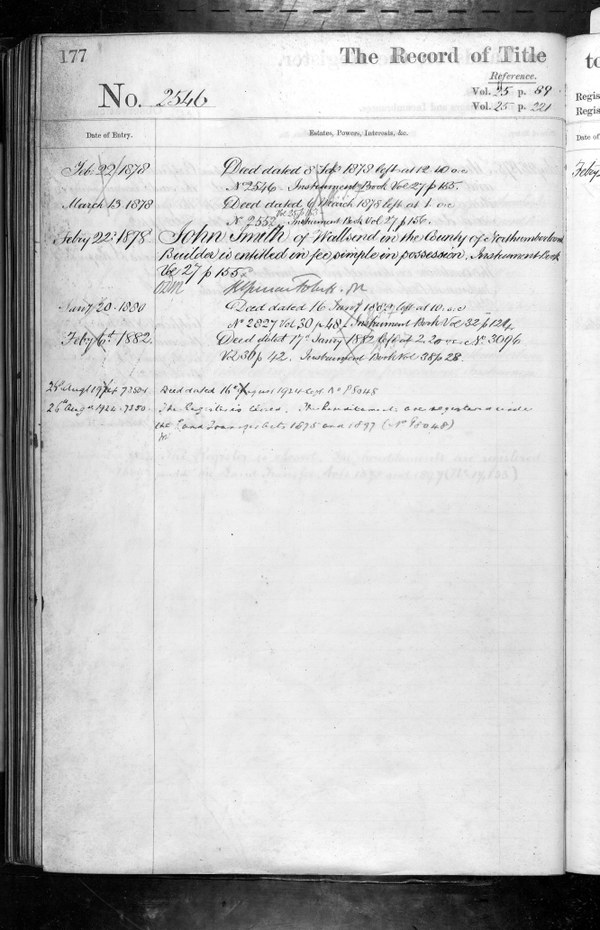 177
The Record of Title
to
Reference.
No. 2546
Vol. 25 p. 89
Vol. 25 p. 221
Regis
Regis
Date of Entry.
Estates, Powers, Interests, &c.
Date of
Feb. 22/1878 Deed dated 8 Feb 1878 left at 12.40 o.c.
Febry
No 2546. Instrument Book Vol 27 p 155.
March 13 1878 Deed dated 9 March 1878 left at 1. o.c
No 2552 Instrument Book Vol. 27 p 156.
Febry 22d 1878 John Smith of Wallsend in the County of Northumberland
Builder is entitled in fee simple in possession. Instrument Book
Vol 27 p 155.
Jany 20. 1880 Deed dated 16 Jany left at 10. o.c
No 2827 Vol 30 p. 48 Instrument Book Vol 32 p 124
Feby 6th 1882. Deed dated 17th Jany 1882 left at 2.20 o.c. No 3096
Vol 30 p 42. Instrument Book Vol 38 p 28.
Deed dated 16th August 1924 No P5048
26th Aug 1924 The Register is closed. The hereditaments are registered under
the Land Transfer Acts 1875 and 1897 (No P5048)